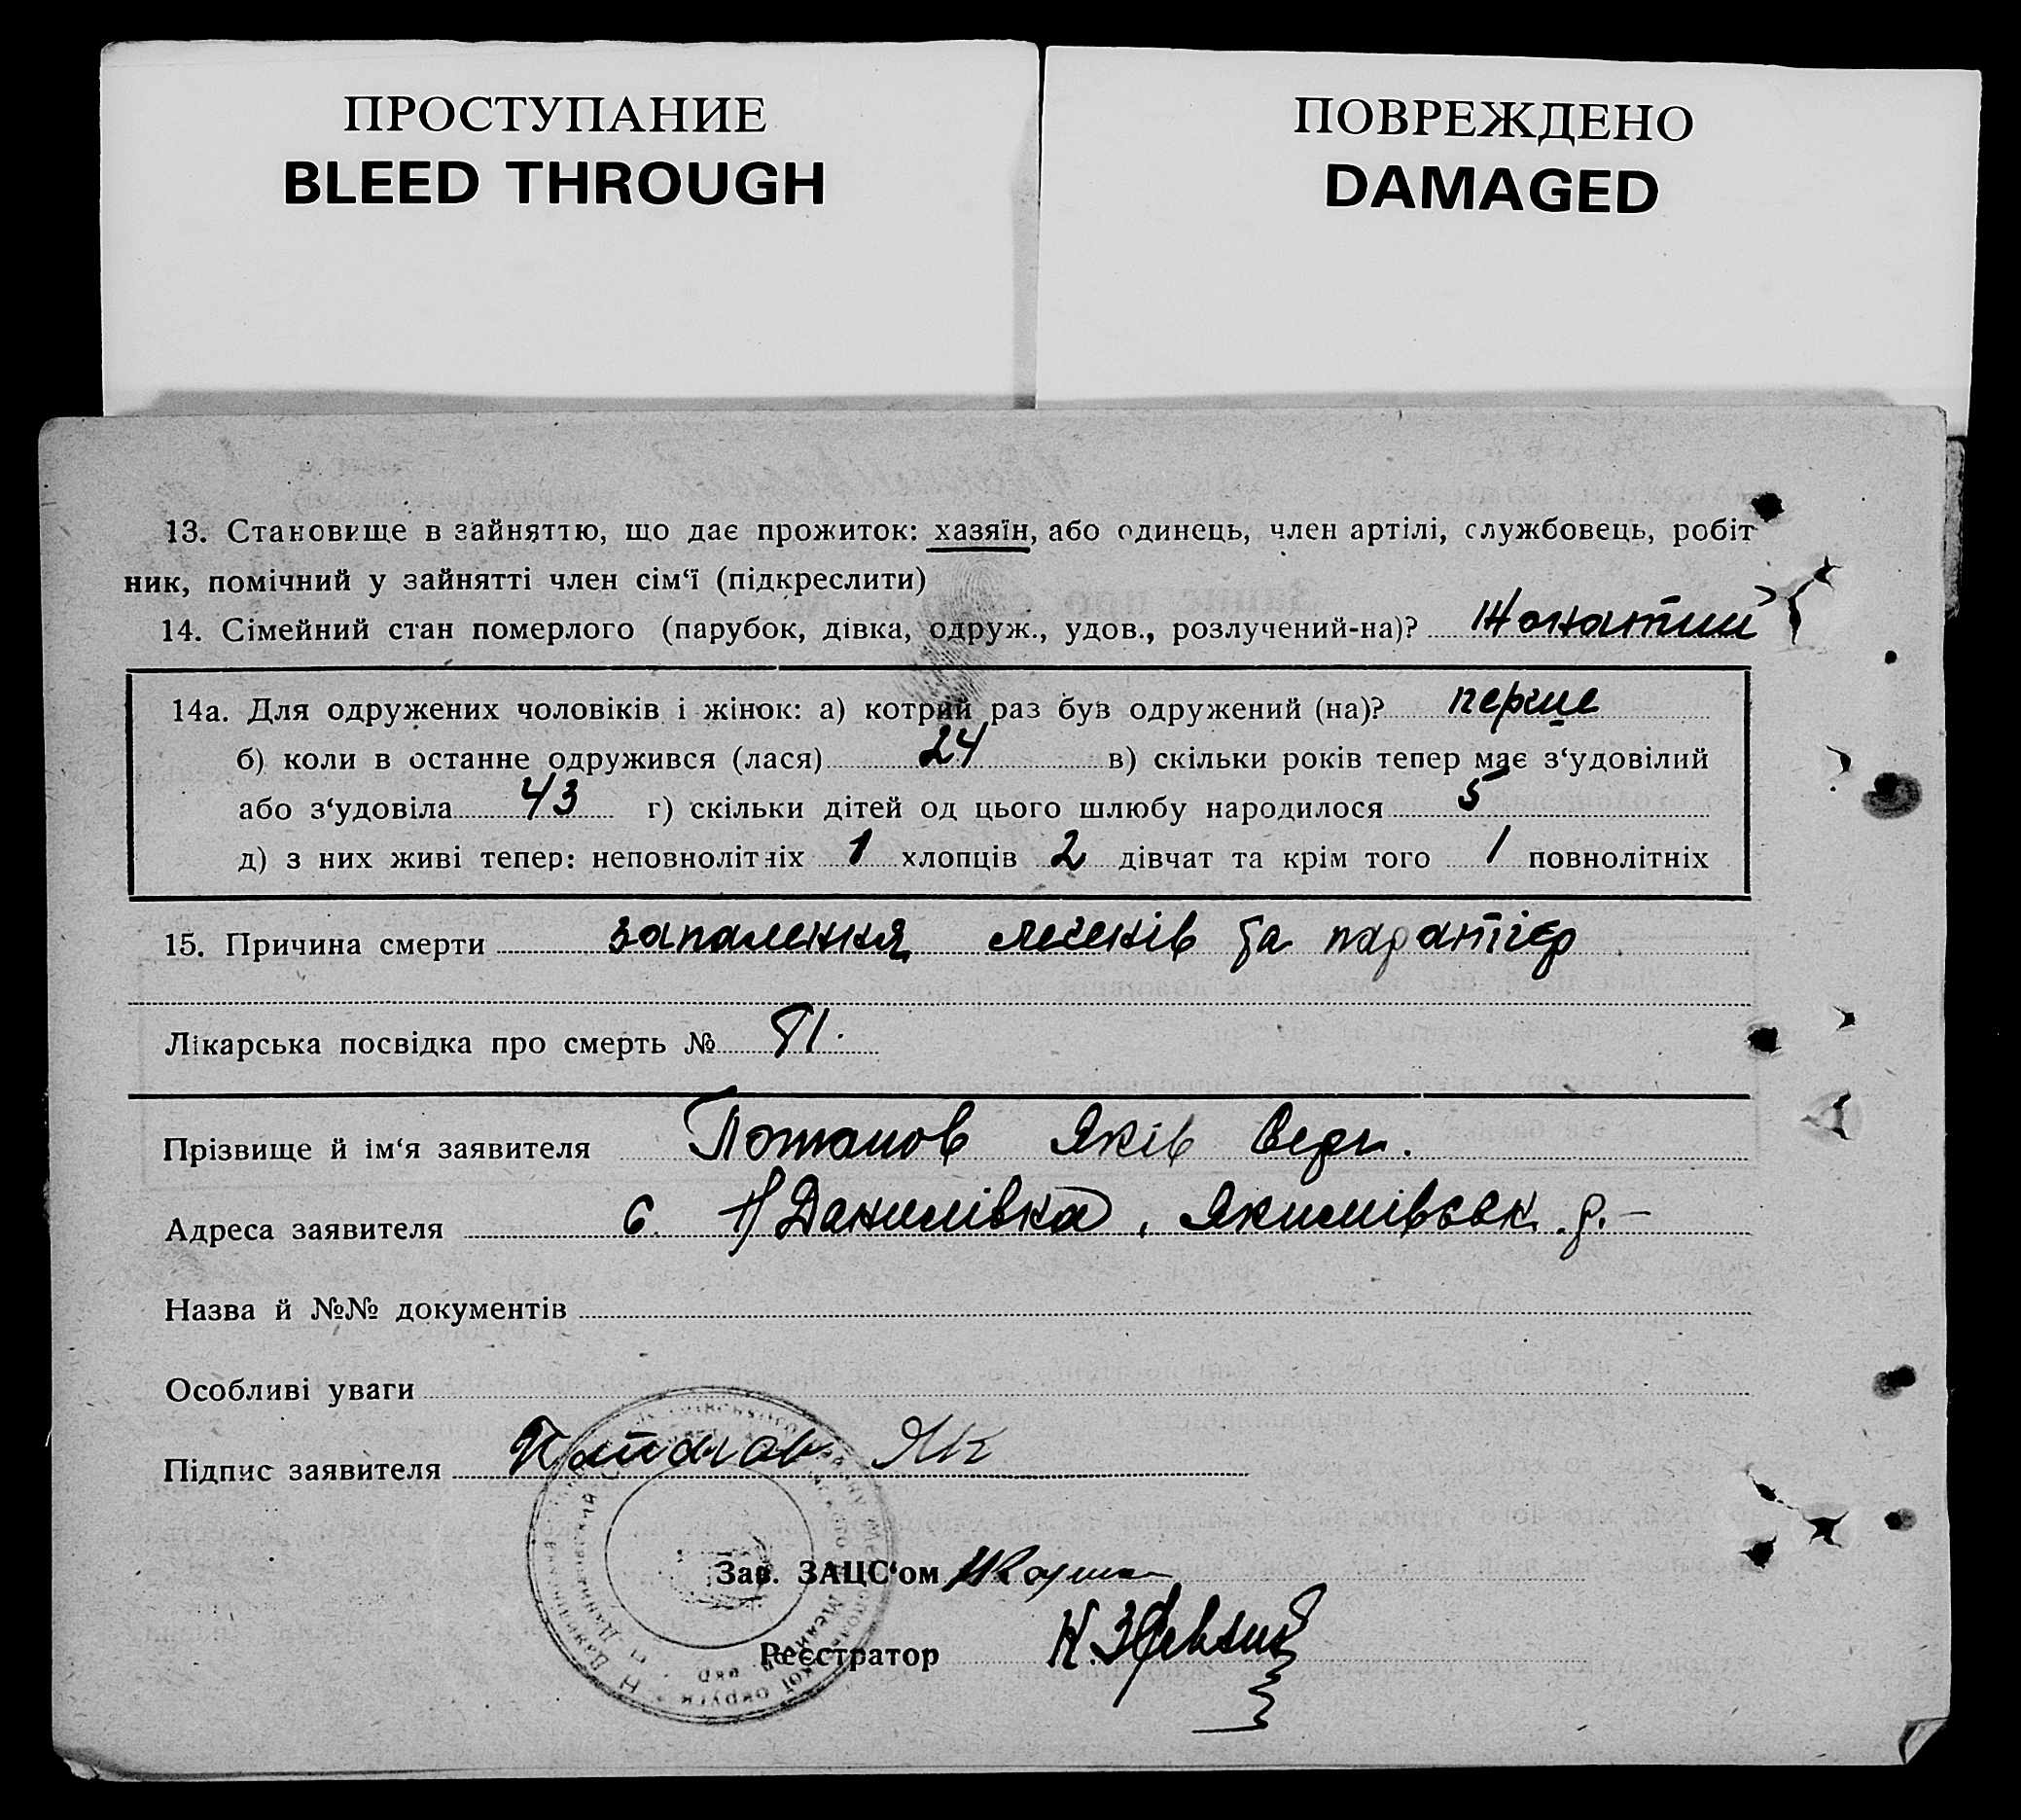 ПРОСТУПАНИЕ
BLEED THROUGH
ПОВРЕЖДЕНО
DAMAGED
13. Становище в зайняттю, що дає прожиток: хазяїн, або одинець, член артілі, службовець, робіт
ник, помічний у зайнятті член сім‘ї (підкреслити)
14. Сімейний стан померлого (парубок, дівка, одруж., удов., розлучений-на)? Жонатий
14а. Для одружених чоловіків і жінок: а) котрий раз був одружений (на)? перше
б) коли в останне одружився (лася) 24 в) скільки років тепер має з‘удовілий
або з‘удовіла 43 г) скільки дітей од цього шлюбу народилося 5
д) з них живі тепер: неповнолітніх 1 хлопців 2 дівчат та крім того 1 повнолітніх
15. Причина смерти запалення легенів та
Лікарська посвідка про смерть № 81.
Прізвище й ім‘я заявителя Потапов Яків
Адреса заявителя с. Н Данилівка, Якимівськ. р.-
Назва й №№ документів
Особливі уваги
Підпис заявителя Потапов Як
Зав. ЗАЦС‘ом
Реєстратор